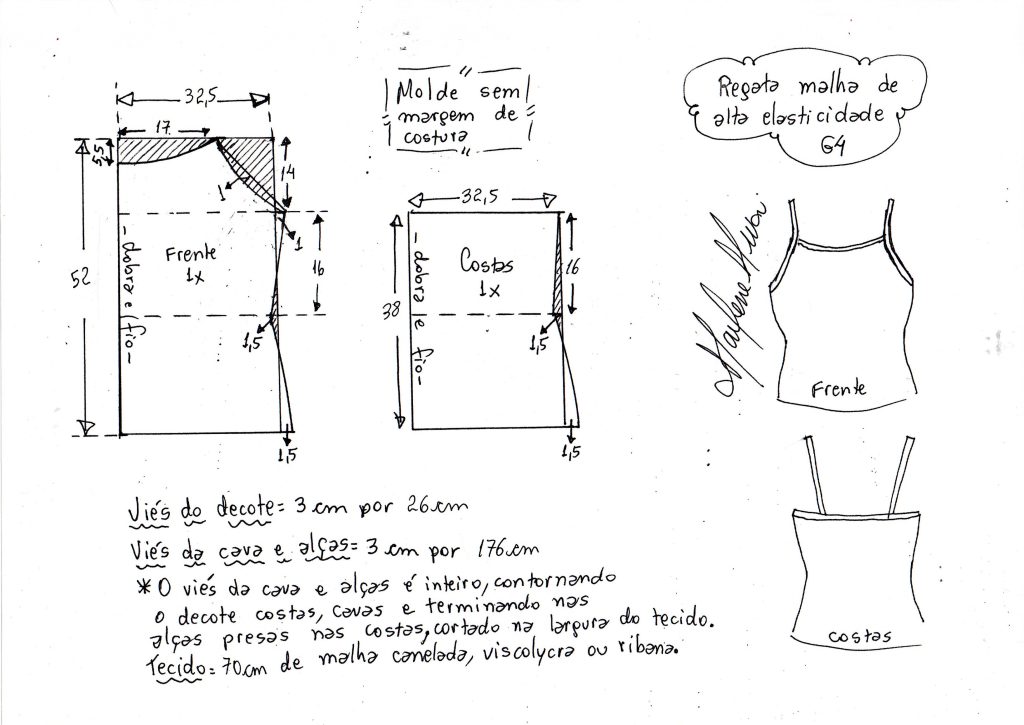 Regata malha de
alta elasticidade
G4
Molde sem
margem de
costura
32,5
17
5,5
14
1
1
16
52
Frente
1x
-dobra e fio-
1,5
1,5
32,5
16
38
Costas
1x
-dobra e fio-
1,5
1,5
Frente
costas
Viés do decote = 3 cm por 26 cm
Viés da cava e alças = 3 cm por 176 cm
* O viés da cava e alças é inteiro, contornando
o decote costas, cavas e terminando nas
alças presas nas costas, cortado na largura do tecido.
Tecido = 70 cm de malha canelada, viscolycra ou ribana.